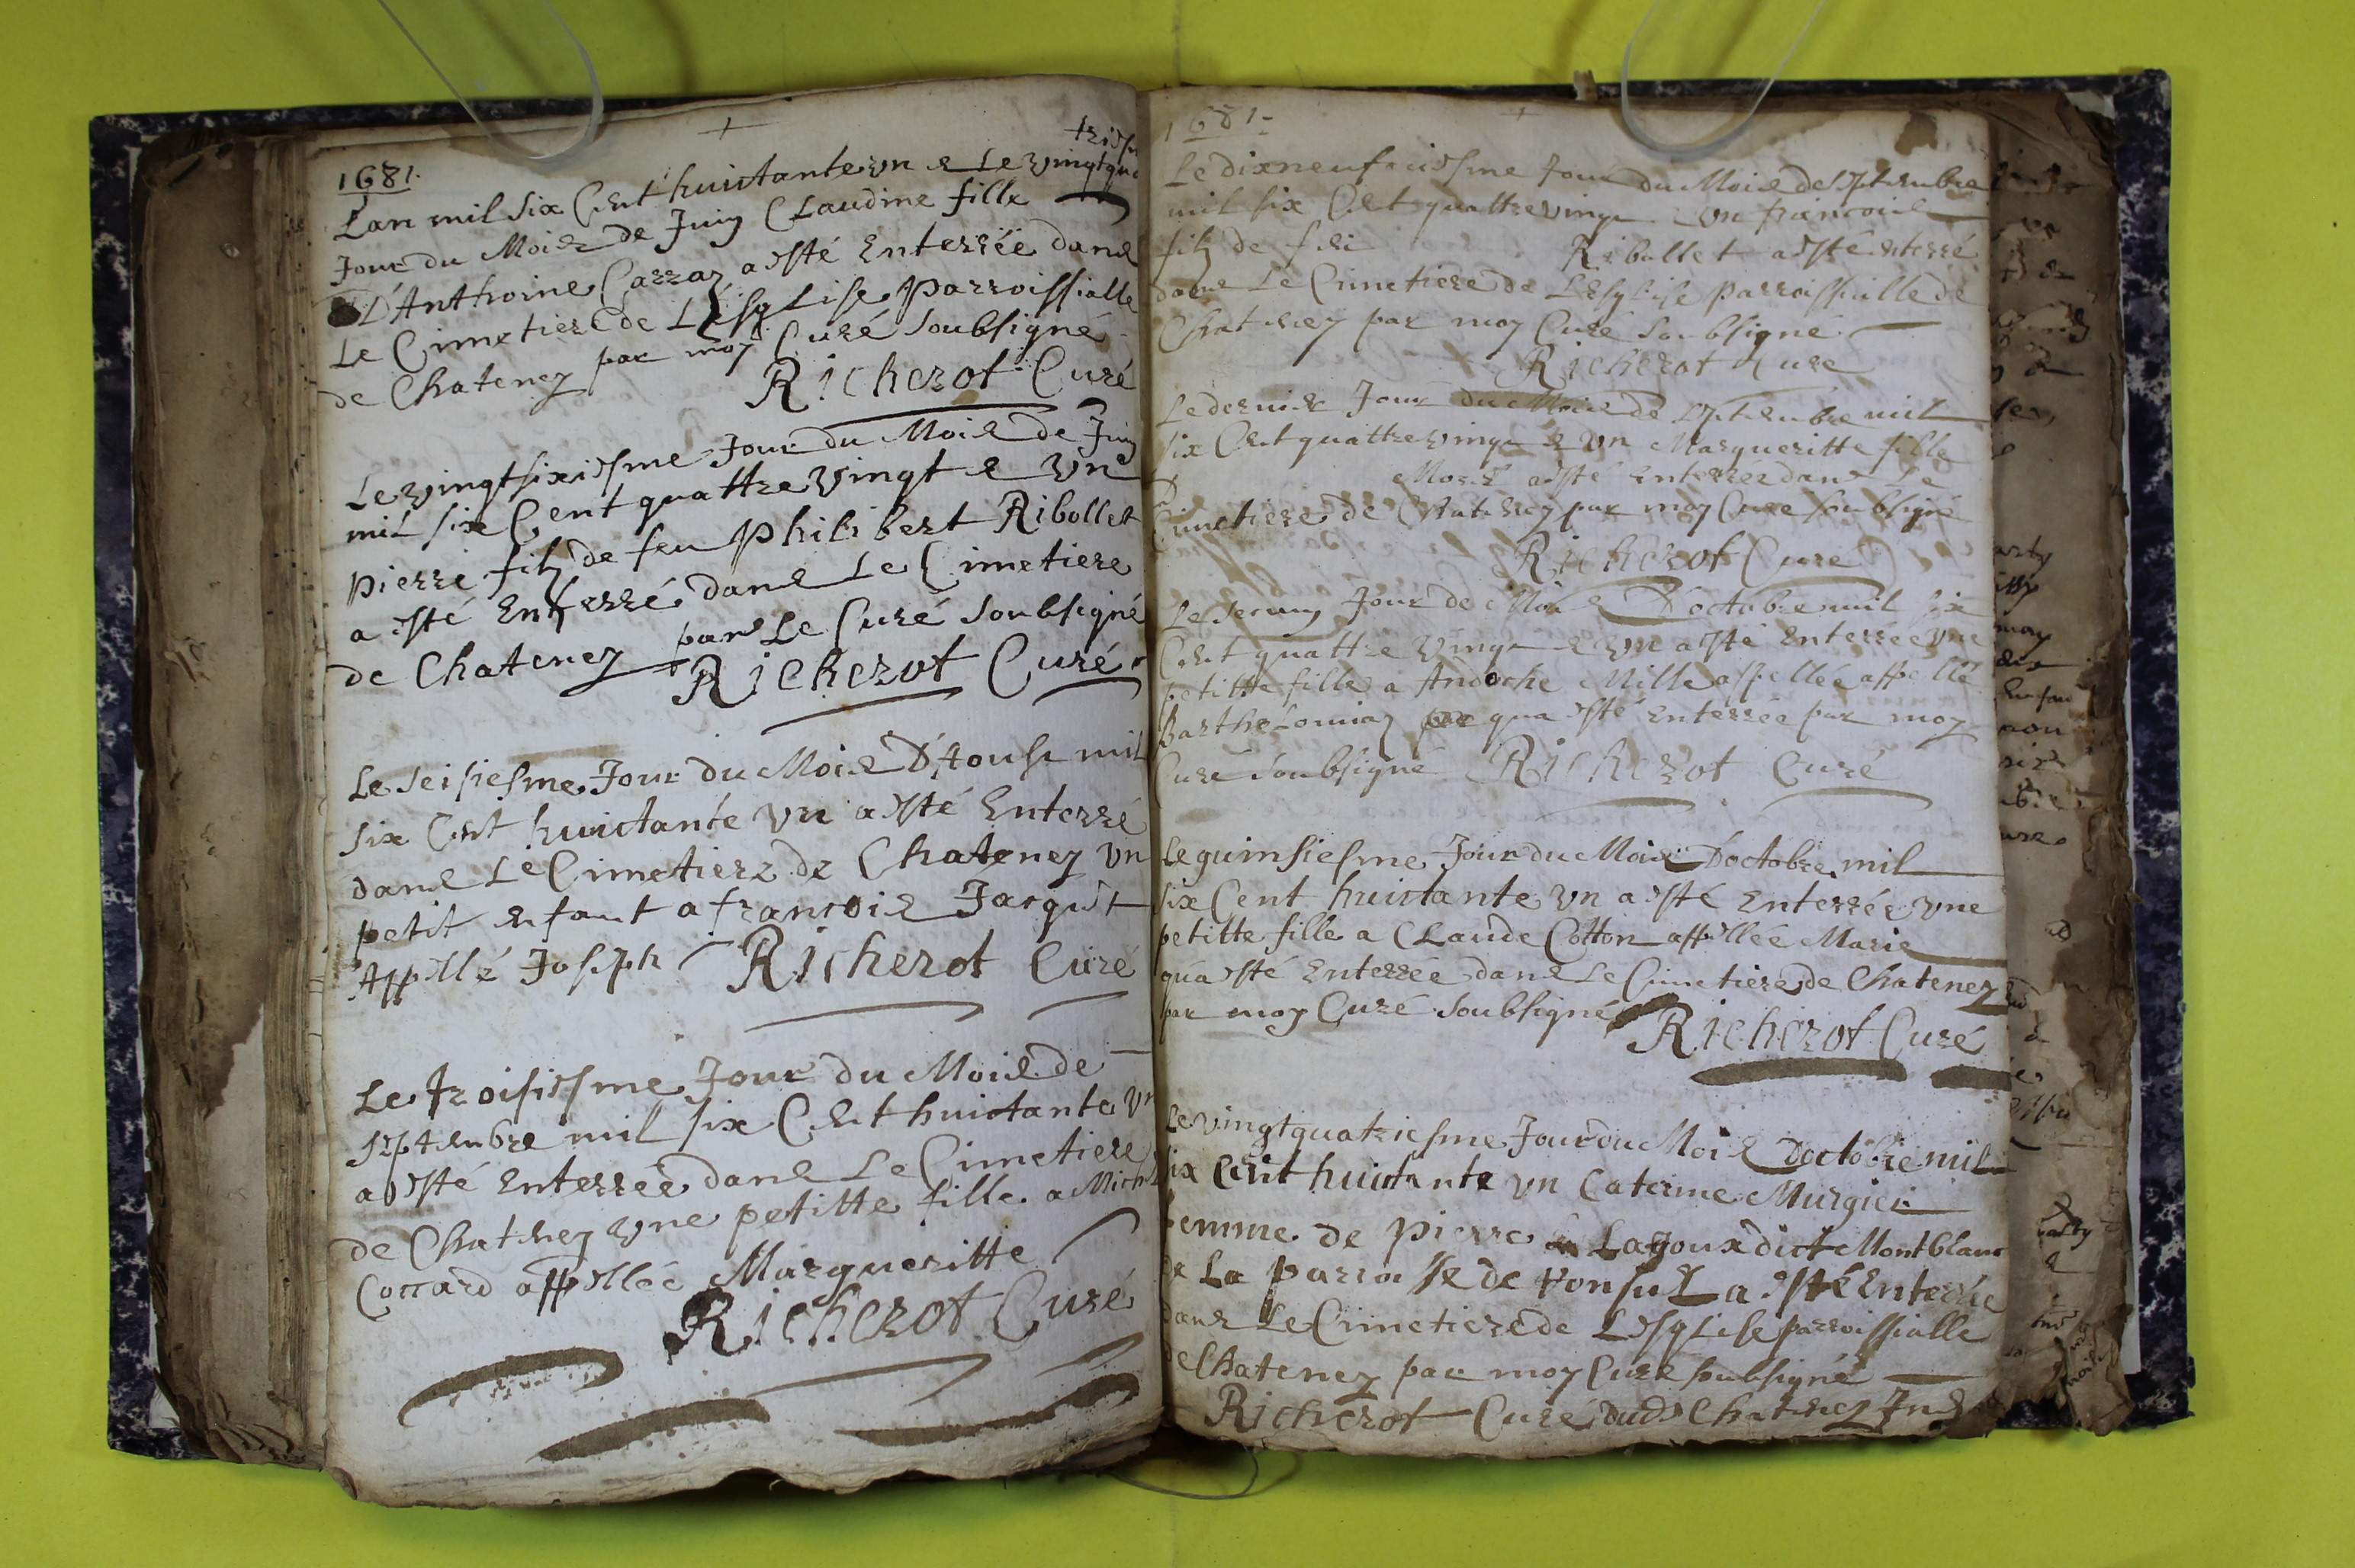 1681.
Lan mil six Cent huictante un & Le vingtqua
triesm
Jour du Mois de Juin Claudine fille
D'Anthoine Carraz a esté Enterrée dans
Le Cimetiere de L'esglise parroissialle
de Chatenez par moy Curé soubsigné
Richerot Curé
Le vingtsixiesme Jour du Mois de Juin
mil six Cent quattre vingt & un
pierre filz de feu philibert Ribollet
a esté Enterré dans Le Cimetiere
de Chatenez par Le Curé soubsigné
Richerot Curé
Le seisiesme Jour du Mois D'Aoust mil
six Cent huictante un a esté Enterré
dans Le Cimetiere de Chatenez un
petit enfant a francois Jacquet
Appellé Joseph Richerot Curé
Le troisiesme Jour du Mois de
septembre mil six Cent huictante un
a esté Enterrée dans Le Cimetiere
de Chatenez une petitte fille a Michel
appellée Margueritte
Richerot Curé
1681
Le dixneufviesme Jour du Mois de septembre
mil six Cent quattre vingt & un francois
filz de feu Ribollet a esté enterré
dans Le Cimetiere de L'esglise parroissialle de
Chatenez par moy Curé soubsigné
Richerot Cure
Le dernier Jour du Mois de septembre mil
six Cent quattre vingt & un Margueritte fille
D Morel a esté Enterrée dans Le
Cimetiere de Chatenez par moy Cure soubsigné
Richerot Cure
Le Jour de Mois D'octobre mil six
Cent quattre vingt & un a esté Enterrée une
petitte fille a Andoche Mille appellée appellé
qua esté enterrée par moy
Curé soubsigné Richerot Curé
Le quinsiesme Jour du Mois D'octobre mil
six Cent huictante un a esté Enterrée une
petitte fille a Claude Cotton appellée Marie
qua esté Enterrée dans Le Cimetiere de Chatenez
par moy Curé soubsigné
Richerot Curé
Le vingtquatriesme Jour du Mois D'octobre mil
six Cent huictante un Caterine Murgier
femme de pierre Lagoux dict Montblanc
de La parroisse de a esté Enterrée
dans Le Cimetiere de L'esglise parroissialle
de Chatenez par moy Curé soubsigné
Richerot Curé dud Chatenez